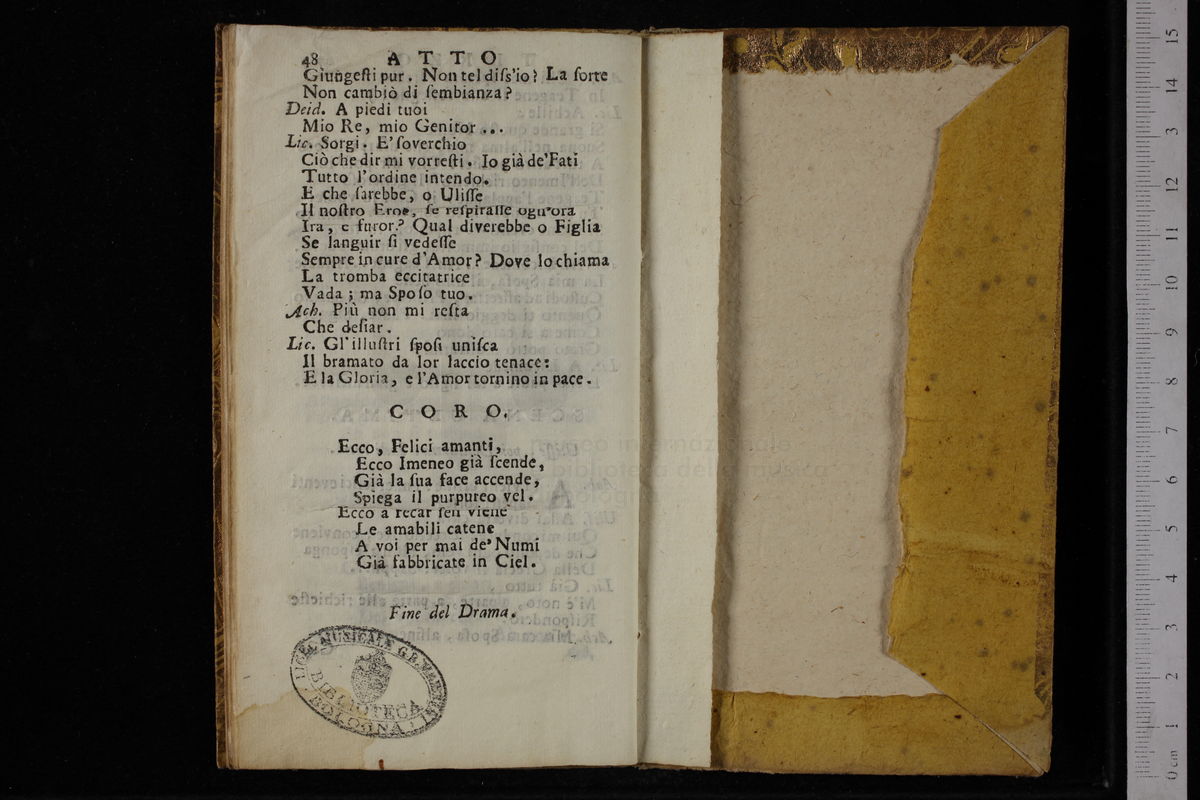 48 ATTO
Giungeſti pur. Non tel diſs'io? La ſorte
Non cambiò di ſembianza?
Deid. A piedi tuoi
Mio Re, mio Genitor ...
Lic. Sorgi. E' ſoverchio
Ciò che dir mi vorreſti. Io già de' Fati
Tutto l'ordine intendo.
E che ſarebbe, o Uliſſe
Il noſtro Eroe, ſe reſpiraſſe ogn'ora
Ira, e furor? Qual diverebbe o Figlia
Se languir ſi vedeſſe
Sempre in cure d'Amor? Dove lo chiama
La tromba eccitatrice
Vada; ma Spoſo tuo.
Ach. Più non mi reſta
Che deſiar.
Lic. Gl'illuſtri ſpoſi uniſca
Il bramato da lor laccio tenace:
E la Gloria, e l'Amor tornino in pace.
CORO.
Ecco, Felici amanti,
Ecco Imeneo già ſcende,
Già la ſua face accende,
Spiega il purpureo vel.
Ecco a recar ſen viene
Le amabili catene
A voi per mai de' Numi
Già fabbricate in Ciel.
Fine del Drama.
LICEO MUSICALE G.B. MARTINI
BIBLIOTECA
BOLOGNA
museo internazionale
biblioteca della musica
bologna
15
14
13
12
11
10
9
8
7
6
5
4
3
2
1
0 cm